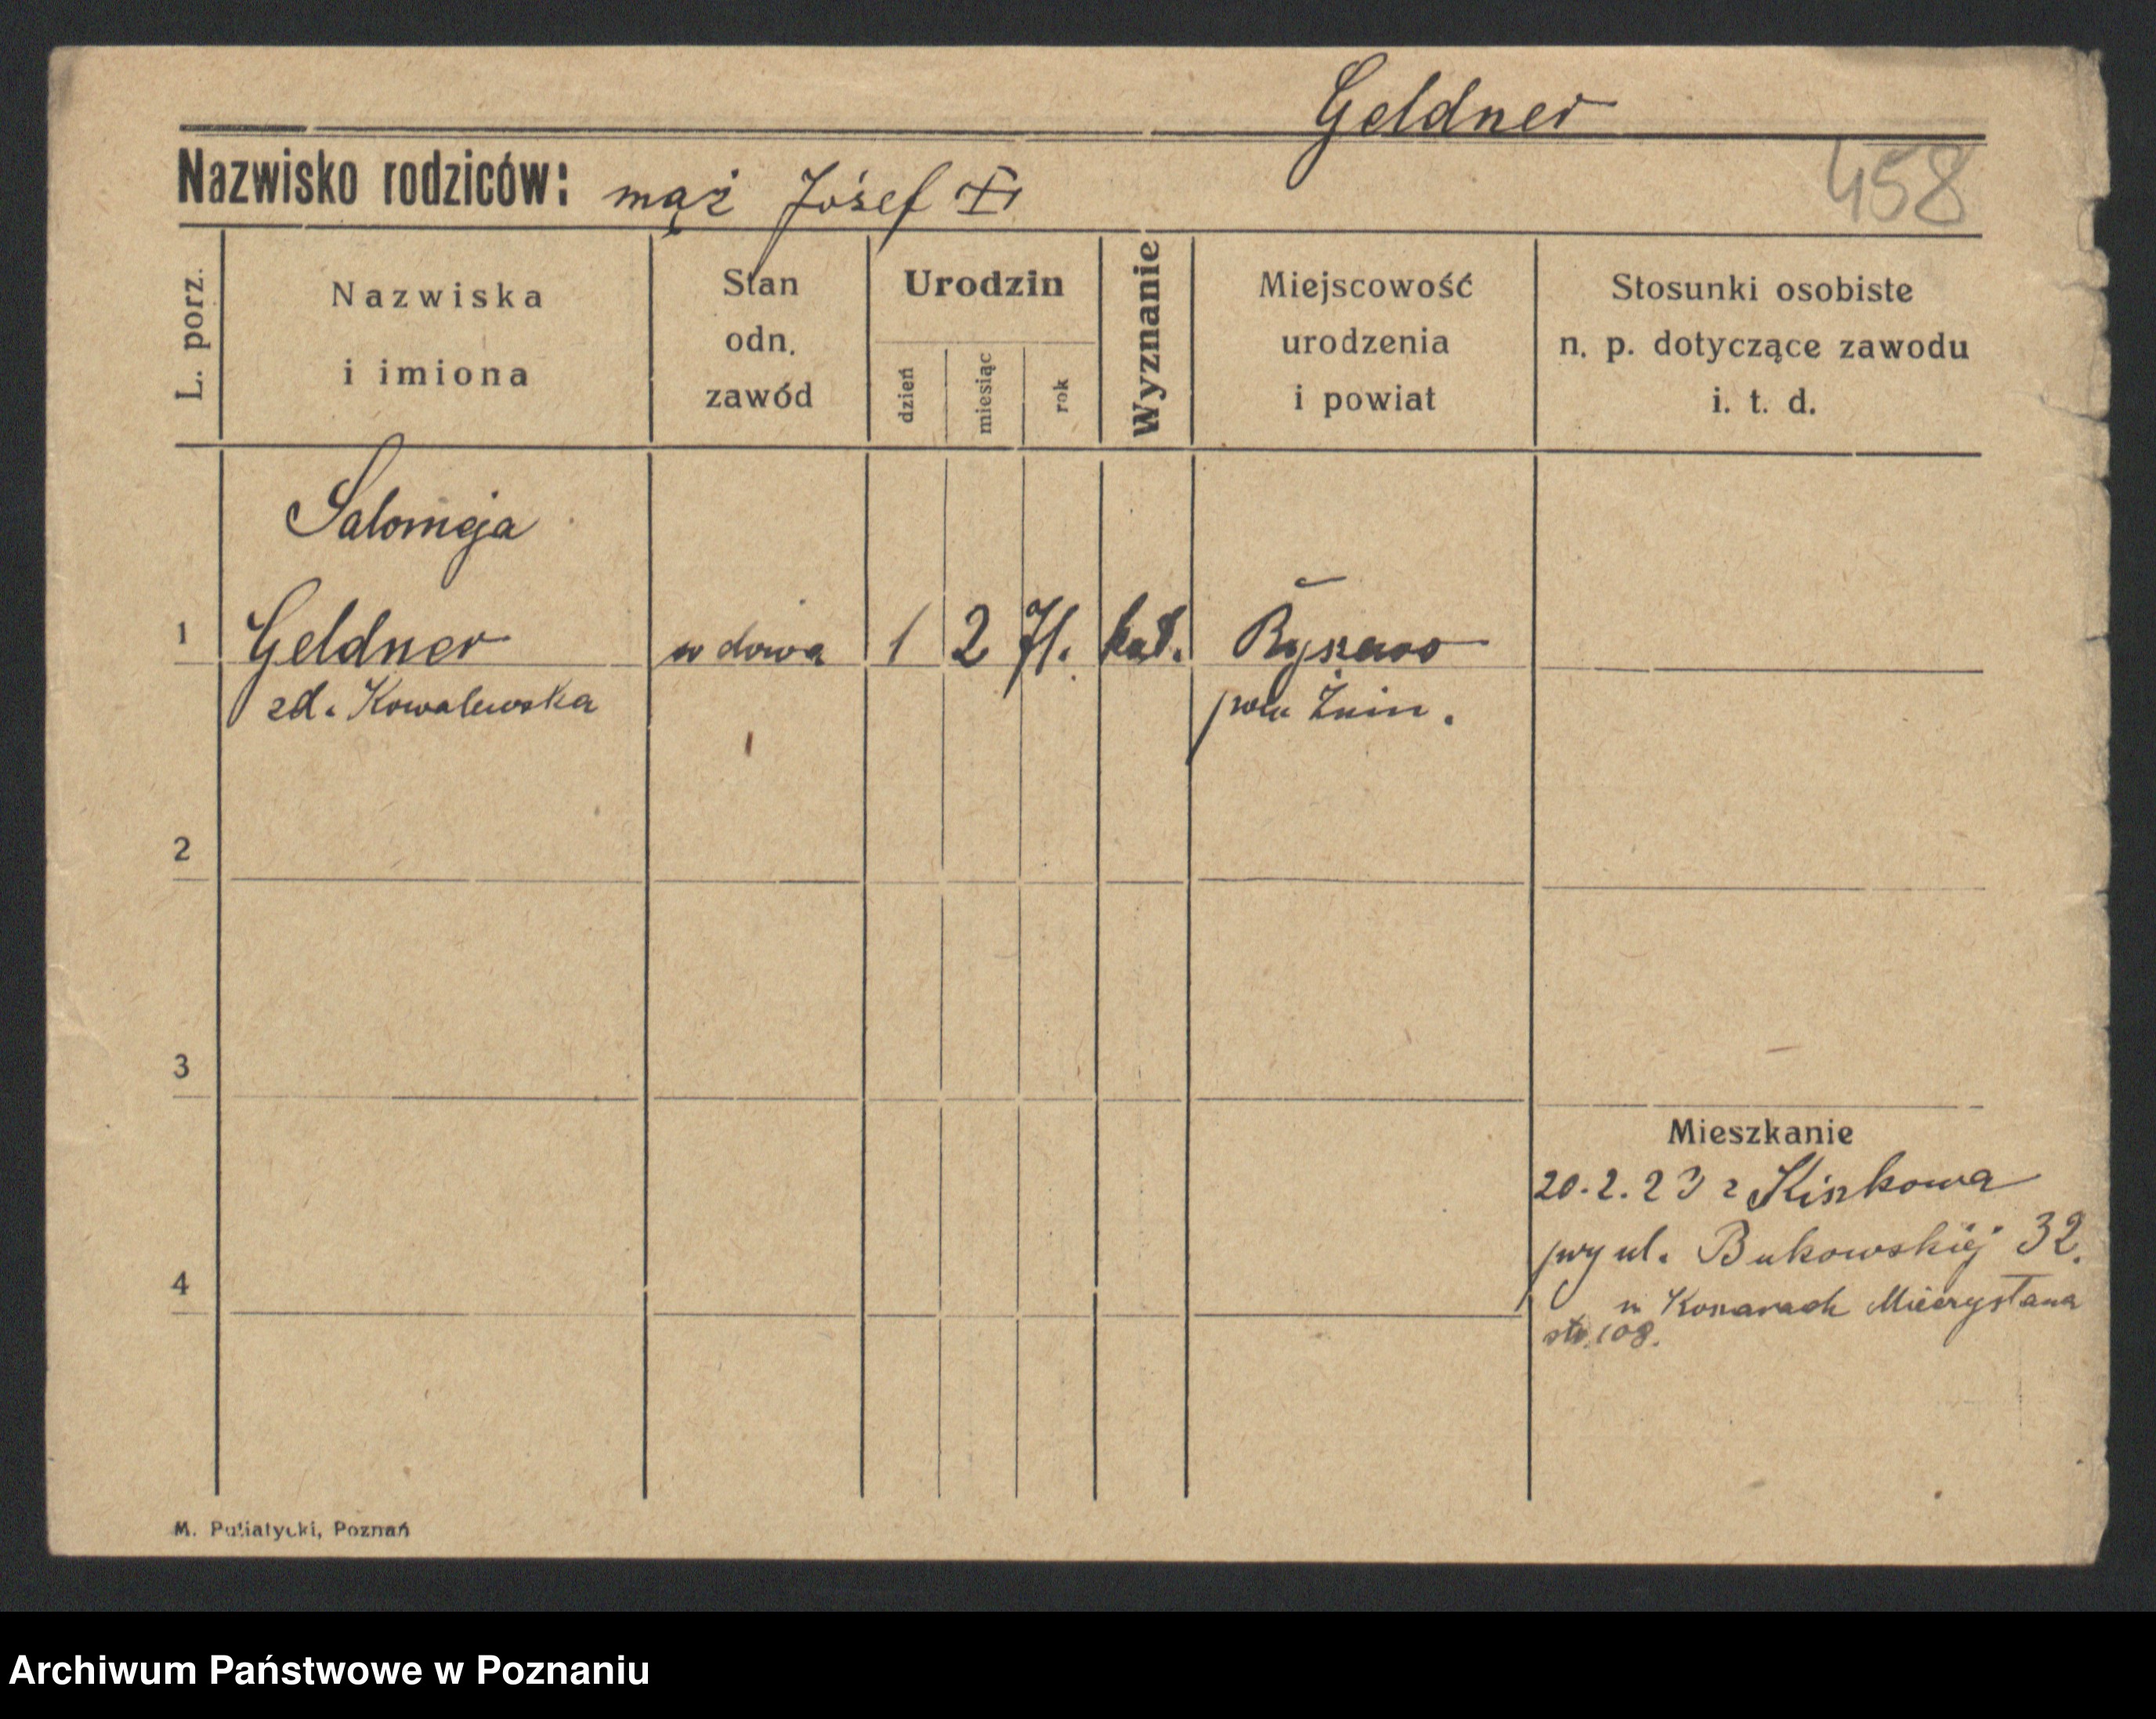 Geldner
458
Nazwisko rodziców: mąż Józef
L. porz.
Nazwiska
i imiona
Stan
odn.
zawód
Urodzin
dzień
miesiąc
rok
Wyznanie
Miejscowość
urodzenia
i powiat
Stosunki osobiste
n. p. dotyczące zawodu
i. t. d.
Salomeja
1 Geldner wdowa 1 2 71. kat. Ryszewo
zd. Kowalewska Żnin.
2
3
Mieszkanie
20.2.23 z Kiszkowa
przy ul. Bukowskiej 32.
4
u Mieczysława
str. 108.
M. Putiatycki, Poznań
Archiwum Państwowe w Poznaniu